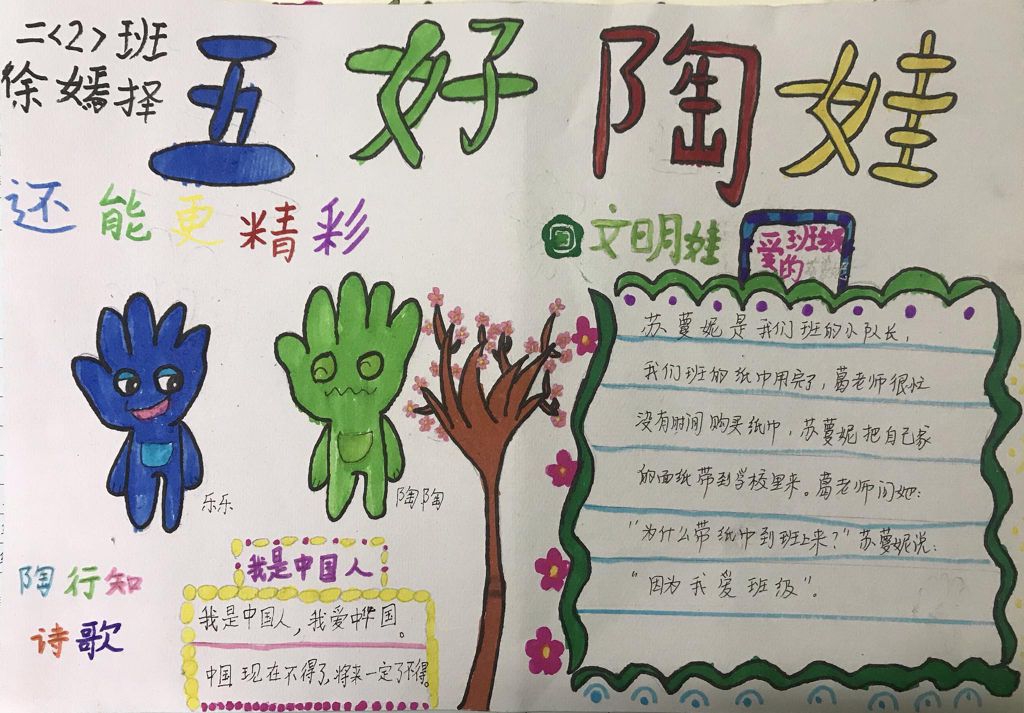 二<2>班
徐嫣择
五好陶娃
还能更精彩
文明娃
爱班级
的苏蔓妮
苏蔓妮是我们班的小队长，
我们班的纸巾用完了，葛老师很忙
没有时间购买纸巾，苏蔓妮把自己家
的面纸带到学校里来。葛老师问她：
“为什么带纸巾到班上来？”苏蔓妮说：
“因为我爱班级”。
乐乐
陶陶
陶行知
诗歌
我是中国人
我是中国人，我爱中华国。
中国现在不得了，将来一定了不得。